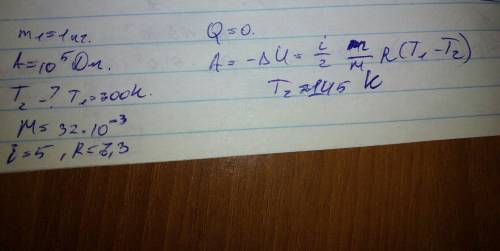 m₁=1кг.
A=10⁵Дж.
T₂-? T₁=300К.
M=32·10⁻³
i=5, R=8,3
Q=0.
A=-ΔU= i/2 m/M R(T₁-T₂)
T₂≈145 К